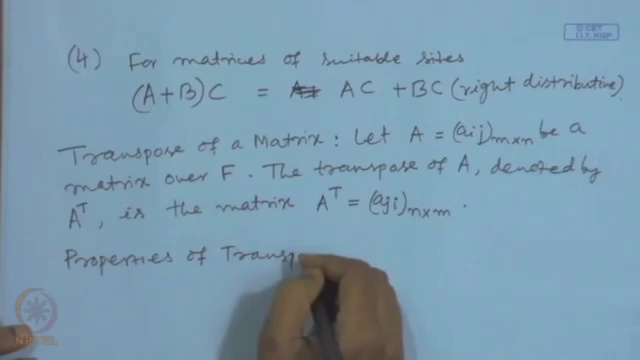 © CET
I.I.T. KGP
(4) For matrices of suitable sites
(A+B)C = AC + BC (right distributive).
Transpose of a Matrix: Let A = (aij)m×n be a
matrix over F. The transpose of A, denoted by
A^T, is the matrix A^T = (aji)n×m.
Properties of Transp
NPTEL